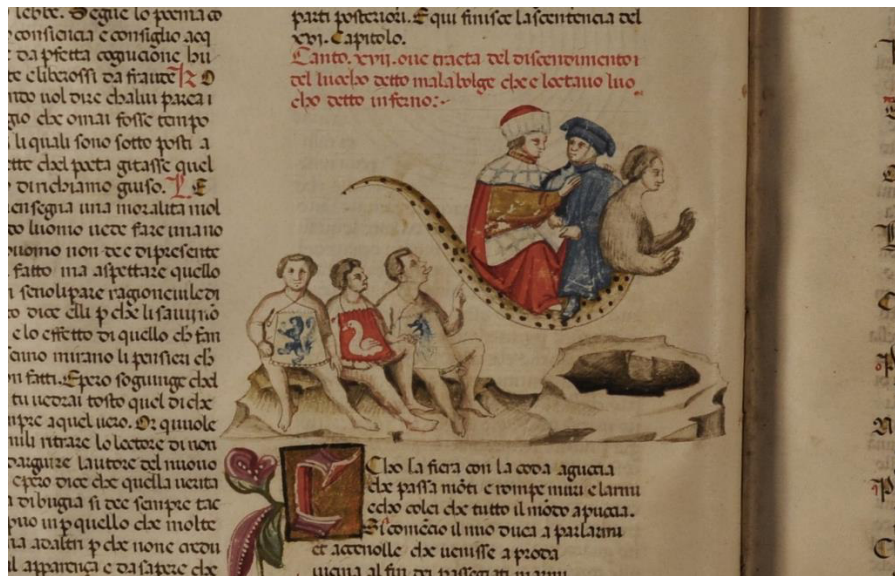 lebbe. Segue lo poema co
consiencia e consiglio acq
da pfetta cognicione hu
te e liberossi da fraude
uol dire chalui parea i
gio che omai fosse tempo
li quali sono sotto posti a
ette chel poeta gitasse quel
di richiamo giuso.
ensegna una moralita mol
do luomo uede fare un ano
uomo non dee di presente
fatto ma aspettare quello
dice elli p che li sauij nō
e lo effetto di quello ch fan
seno mirano li pensieri ch
n fatti. Epero sogiunge chel
tu uedrai tosto quel di che
mpre a quel uero. Or quiuole
ritrare lo lectore di non
lautore del nuouo
epero dice che quella uerita
a di bugia si dee sempre tac
quello che molte
p che none credu
al apparença e da sapere che
parti posteriori. E qui finisce la sentencia del
xvi. Capitolo.
Canto. xvii. oue tracta del discendimento i
del luocho detto malabolge che e loctauo luo
cho detto inferno:
Cho la fiera con la coda aguccia
che passa mōti e rompe muri e larmi
echo colei che tutto il mōdo apuccia.
Si comēcio il mio duca a parlarmi
et accenolle che uenisse a proda
uicina al fin dei passegiati marmi